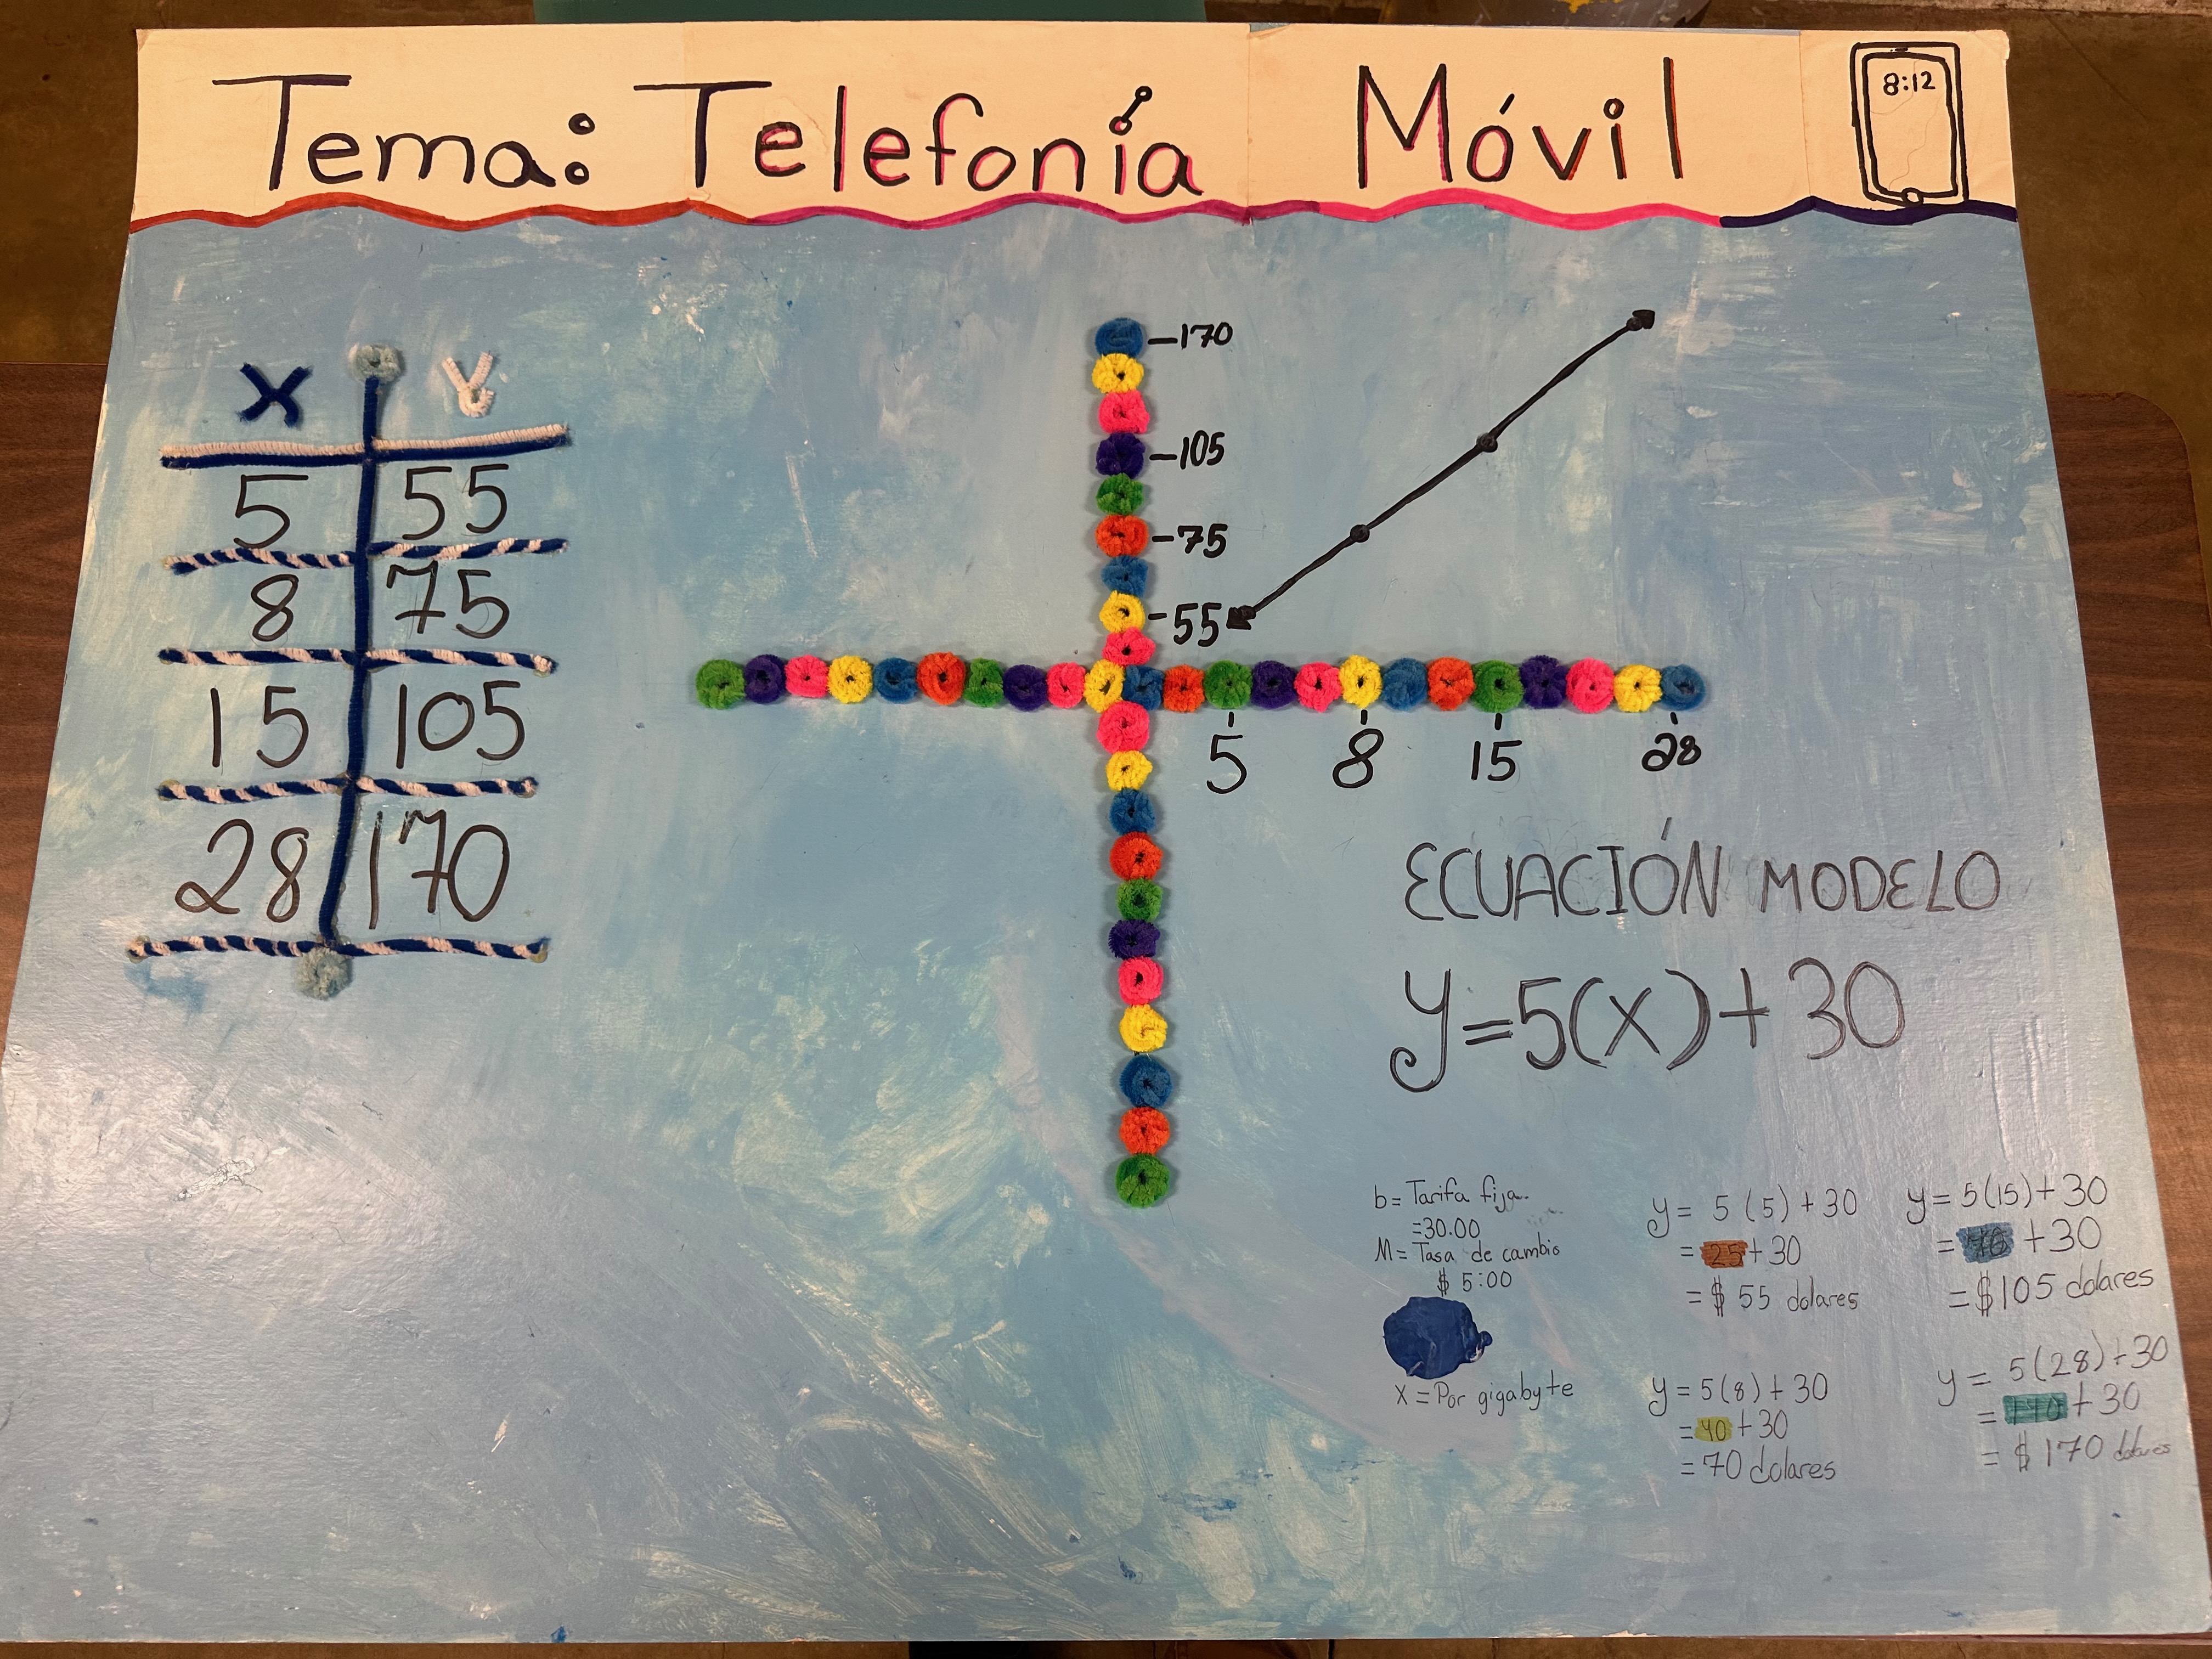 Tema: Telefonía Móvil
8:12
X Y
5 55
8 75
15 105
28 170
170
105
75
55
5 8 15 28
ECUACIÓN MODELO
y=5(x)+30
b= Tarifa fija.
=30.00
M= Tasa de cambio
$ 5:00
X = Por gigabyte
y= 5 (5) +30
= 25 +30
= $ 55 dolares
y= 5(8)+30
= 40 +30
= 70 dolares
y= 5(15)+30
= +30
=$105 dolares
y= 5(28)+30
= 140 +30
= $ 170 dolares